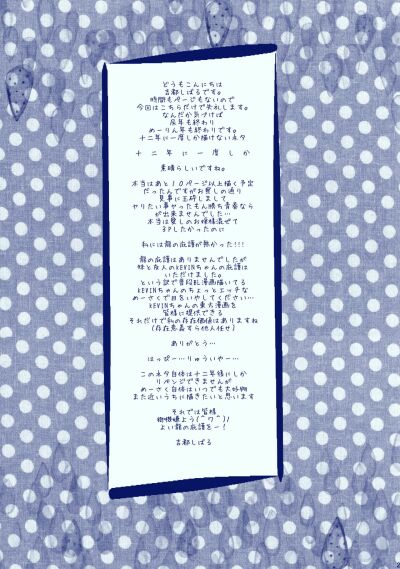 どうもこんにちは
吉都しばるです。
時間もページもないので
今回はこちらだけで失礼します。
なんだか気づけば
辰年も終わり
めーりん年も終わりです。
十二年に一度しか描けないネタ
十二年に一度しか
素晴らしいですね。
本当はあと10ページ以上描く予定
だったんですがお察しの通り
見事に玉砕しまして
ヤりたい事ヤったもん勝ち青春なら
が出来ませんでした…
本当は愛しのお嬢様混ぜて
3Pしたかったのに
私には龍の庇護が無かった!!!
龍の庇護はありませんでしたが
妹と友人のKEVINちゃんの庇護は
いただけました。
という訳で普段乳漫画描いてる
KEVINちゃんのちょっとエッチな
めーさくで目をいやしてください…
KEVINちゃんの東大漫画を
皆様に提供できる
それだけで私の存在価値はありますね
(存在意義すら他人任せ)
ありがとう…
はっぴー…りゅういやー…
このネタ自体は十二年後にしか
リベンジできませんが
めーさく自体はいつでも大好物
また近いうちに描きたいと思います
それでは皆様
よい龍の庇護をー!
吉都しばる